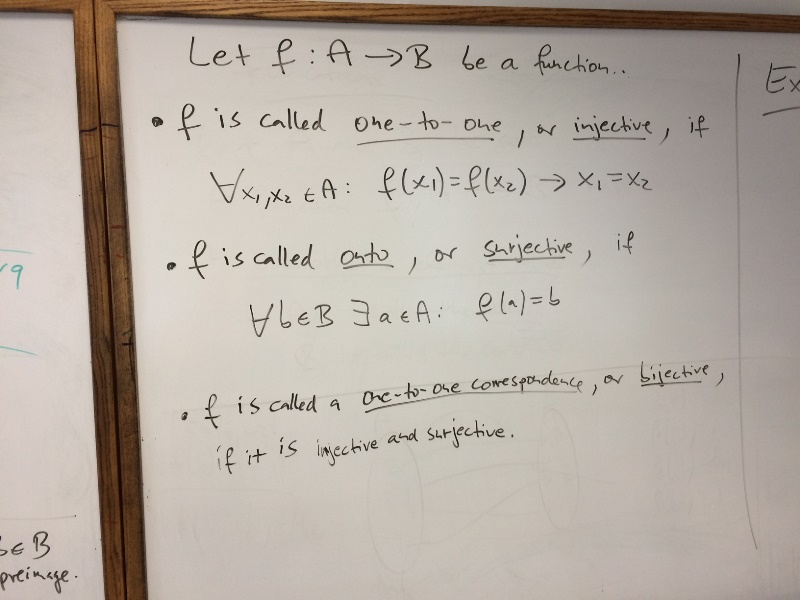 Let f : A → B be a function..
• f is called one-to-one, or injective, if
∀x₁,x₂ ∈ A: f(x₁)=f(x₂) → x₁=x₂
• f is called onto, or surjective, if
∀b∈B ∃a∈A: f(a)=b
• f is called a one-to-one correspondence, or bijective,
if it is injective and surjective.
Ex
9
b∈B
preimage.